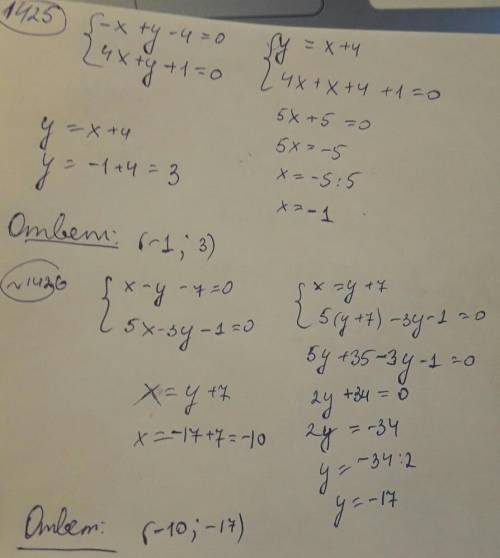 1425
-x + y - 4 = 0
4x + y + 1 = 0
y = x + 4
4x + x + 4 + 1 = 0
5x + 5 = 0
5x = -5
x = -5 : 5
x = -1
y = x + 4
y = -1 + 4 = 3
Ответ: (-1 ; 3)
№1426
x - y - 7 = 0
5x - 3y - 1 = 0
x = y + 7
5(y + 7) - 3y - 1 = 0
5y + 35 - 3y - 1 = 0
2y + 34 = 0
2y = -34
y = -34 : 2
y = -17
x = y + 7
x = -17 + 7 = -10
Ответ: (-10 ; -17)